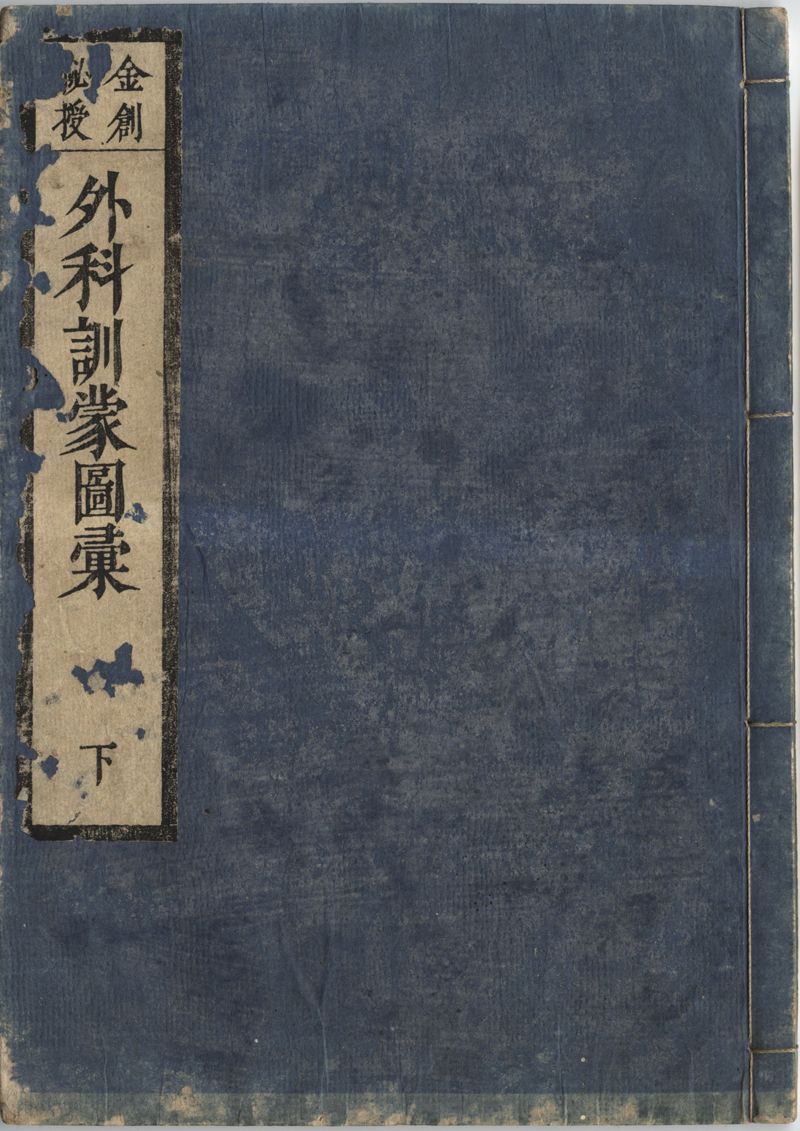 金創
秘授
外科訓蒙圖彙
下